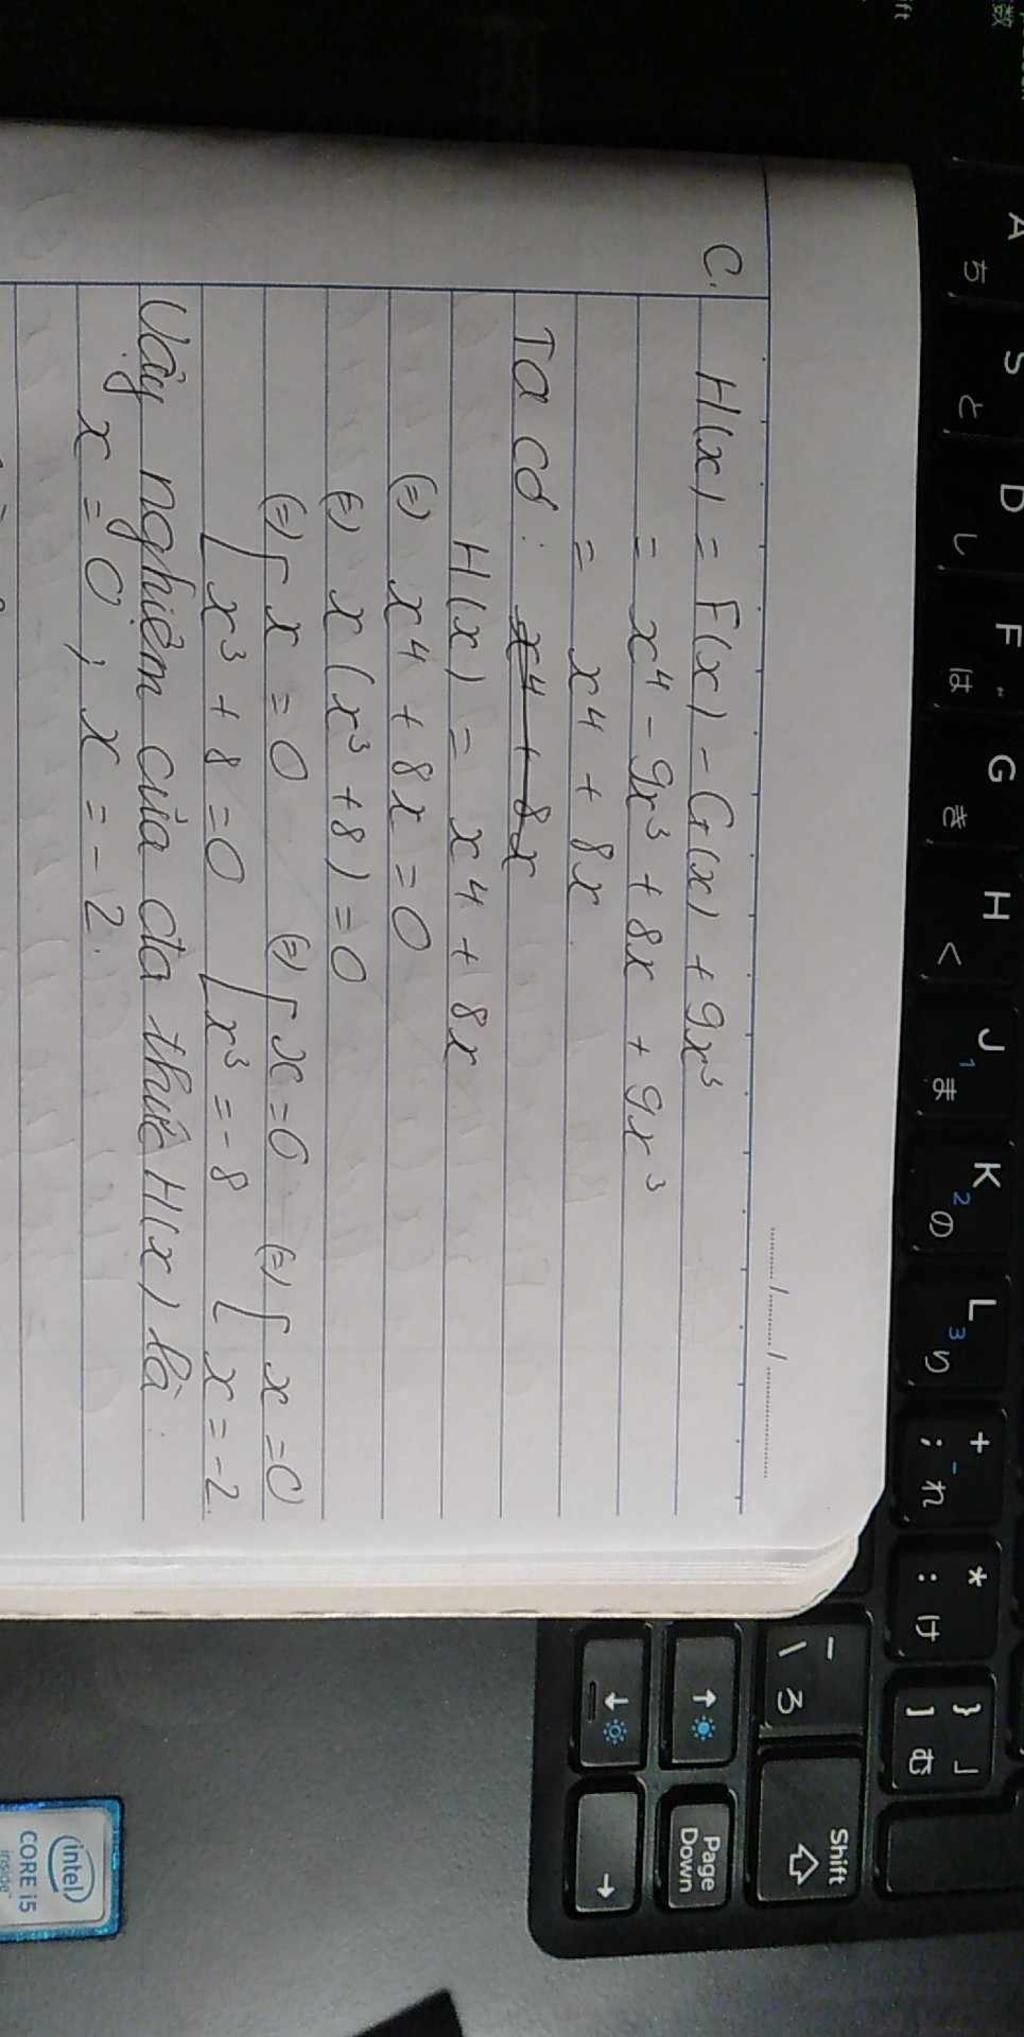 ......./......./............
C. H(x) = F(x) - G(x) + 9x³
= x⁴ - 9x³ + 8x + 9x³
= x⁴ + 8x
Ta có: x⁴ + 8x
H(x) = x⁴ + 8x
(=) x⁴ + 8x = 0
(=) x(x³ + 8) = 0
(=) [ x = 0 (=) [ x = 0 (=) [ x = 0
[ x³ + 8 = 0 [ x³ = -8 [ x = -2.
Vậy nghiệm của đa thức H(x) là
x = 0 ; x = -2.
A ち
S と
D し
F は
G き
H く
J 1 ま
K 2 の
L 3 り
+ - ; れ
* : け
} 」 ] む
_ \ ろ
Shift
↑
Page Down
↓
→
intel
CORE i5
inside
ift
数